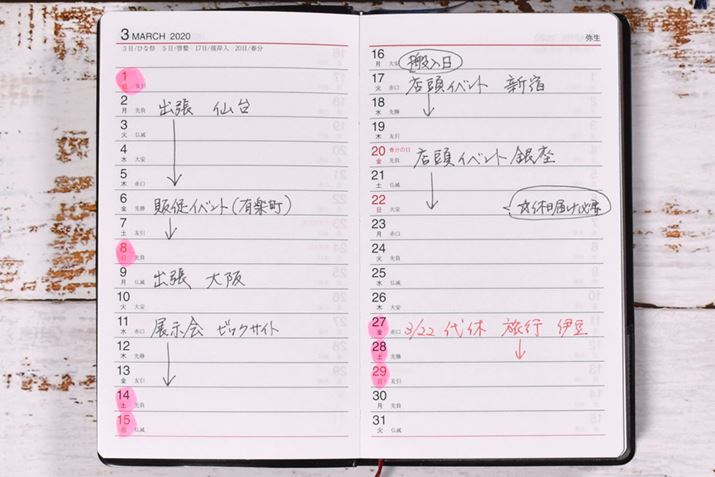 3 MARCH 2020
3日/ひな祭 5日/啓蟄 17日/彼岸入 20日/春分
1 日 友引
2 月 先負 出張 仙台
3 火 仏滅
4 水 大安
5 木 赤口
6 金 先勝 販促イベント(有楽町)
7 土 友引
8 日 先負
9 月 仏滅 出張 大阪
10 火 大安
11 水 赤口 展示会 ビックサイト
12 木 先勝
13 金 友引
14 土 先負
15 日 仏滅
弥生
16 月 大安 搬入日
17 火 赤口 店頭イベント 新宿
18 水 先勝
19 木 友引
20 金 春分の日 先負 店頭イベント 銀座
21 土 仏滅
22 日 大安 ☆休日届け必要
23 月 赤口
24 火
25 水
26 木
27 金 赤口 3/22 代休 旅行 伊豆
28 土 先勝
29 日 友引
30 月 先負
31 火 仏滅